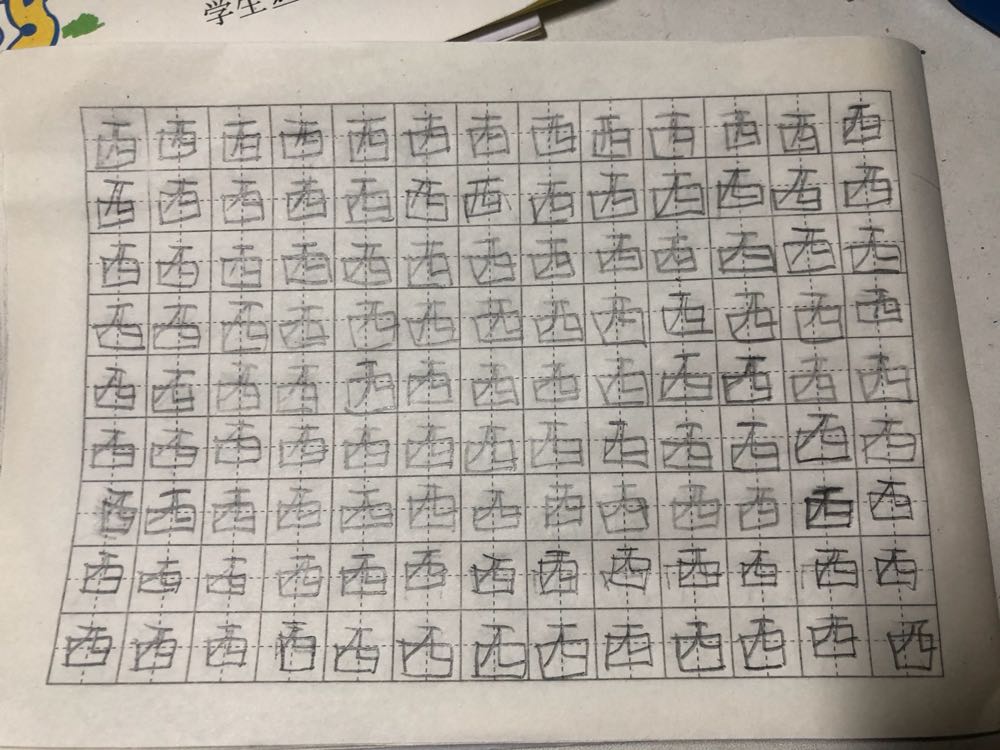 学生
西西西西西西西西西西西西西
西西西西西西西西西西西西西
西西西西西西西西西西西西西
西西西西西西西西西西西西西
西西西西西西西西西西西西西
西西西西西西西西西西西西西
西西西西西西西西西西西西西
西西西西西西西西西西西西西
西西西西西西西西西西西西西